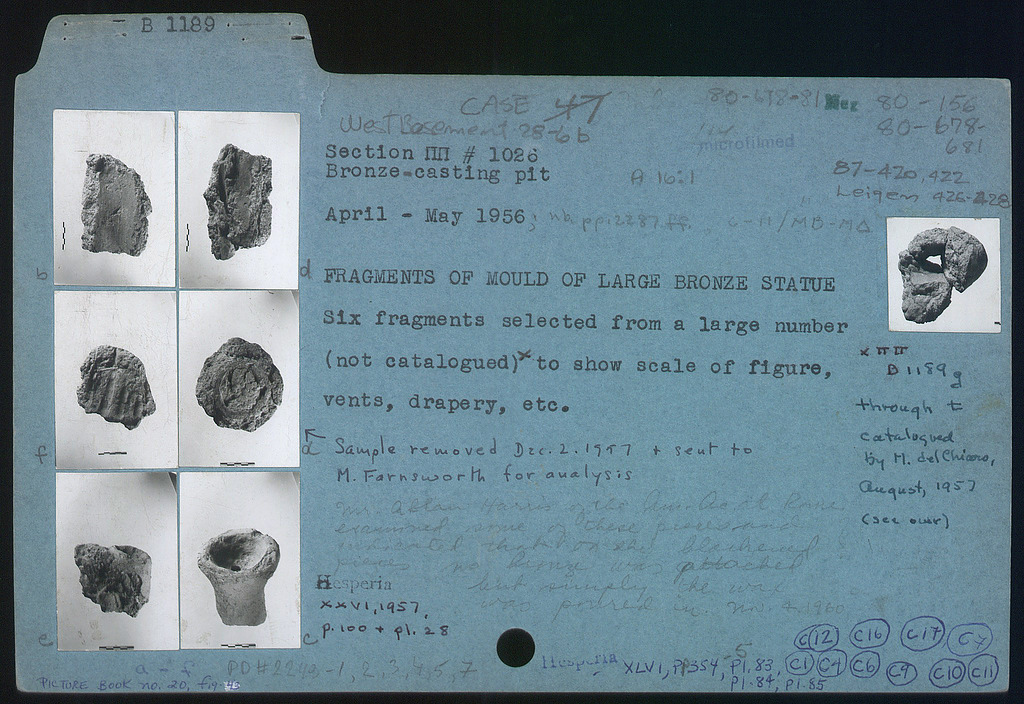 B 1189
CASE 47
80-678-81
Neg
80-156
80-678-
681
West Basement 28-6b
microfilmed
Section ΠΠ # 1026
Bronze-casting pit
A 16:1
87-420, 422
Leigem 426-428
April - May 1956; nb. pp. 2287 ff. C-H/MB-MΔ
b
d
FRAGMENTS OF MOULD OF LARGE BRONZE STATUE
Six fragments selected from a large number
(not catalogued)x to show scale of figure,
vents, drapery, etc.
x ΠΠ
B 1189 g
through t
catalogued
by M. del Chiaro,
August, 1957
(see over)
f
a
Sample removed Dec. 2. 1957 + sent to
M. Farnsworth for analysis
Mr. Allan Harris of the Am. Acad. Rome
examined some of these pieces and
indicated that on the blackened
pieces no bronze was attached
but simply the wax
was poured in. Nov. 4, 1960
Hesperia
XXVI, 1957,
p. 100 + pl. 28
e
c
a - f PD# 2249-1, 2, 3, 4, 5, 7
PICTURE BOOK no. 20, fig.
Hesperia XLVI, pp 354-5, pl. 83,
pl. 84, pl. 85
C12 C16 C17 C7
C1 C4 C6 C9 C10 C11